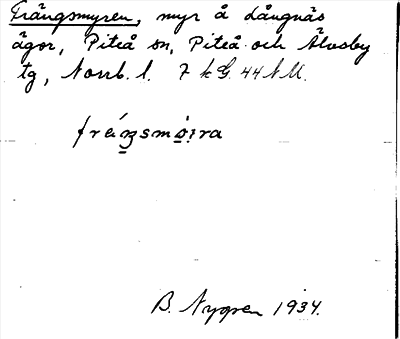 Trängsmyren, myr å Långnäs
ägor, Piteå sn, Piteå och Älvsby
tg, Norrb. l. 7 k G. 44 N M.
B. Nygren 1934.